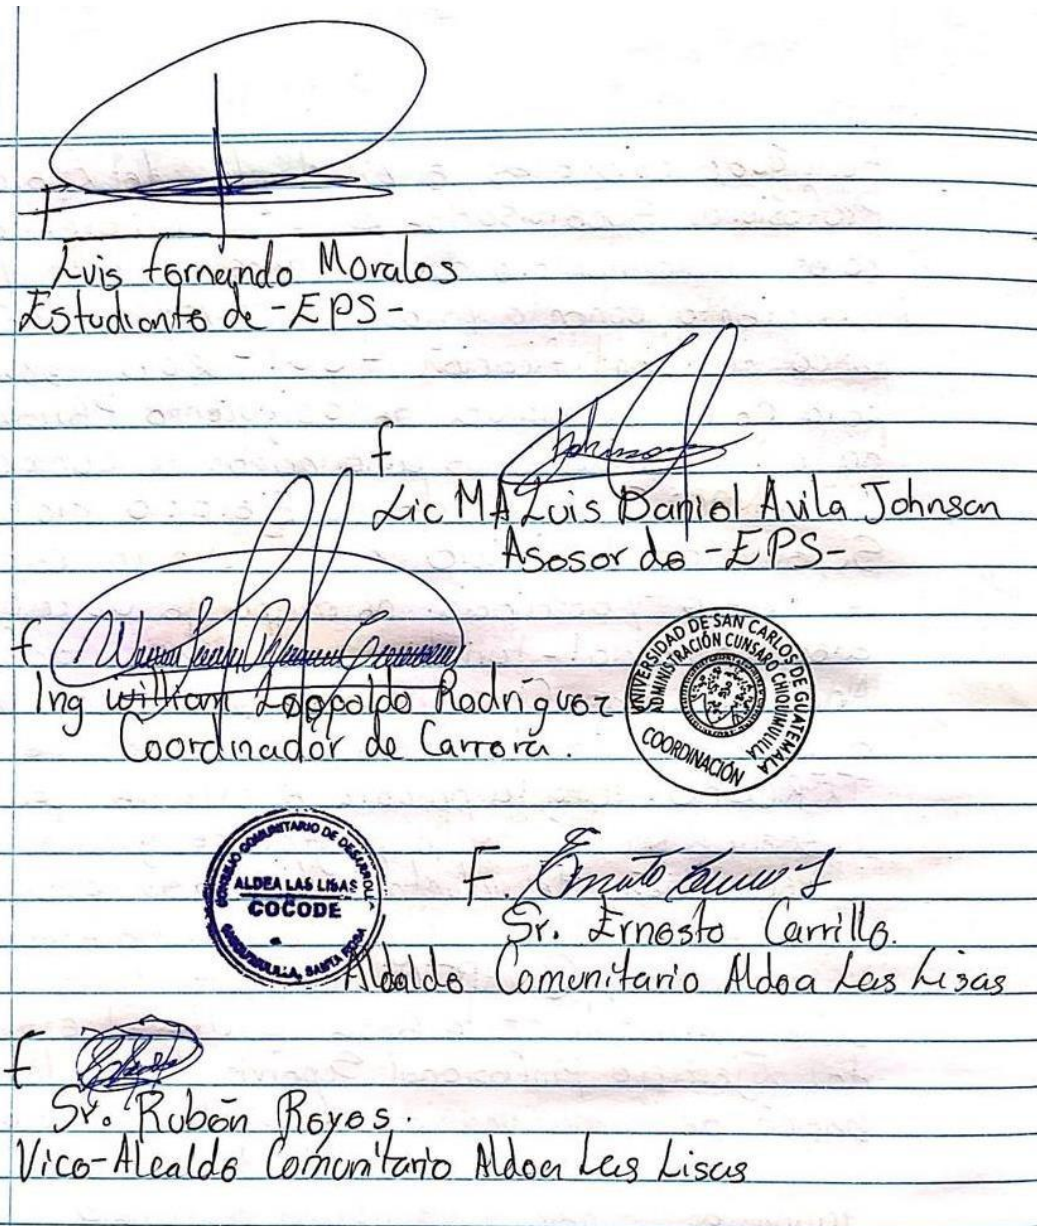 f
Luis Fernando Morales
Estudiante de -EPS-
f Johnson
Lic MA Luis Daniel Avila Johnson
Asesor de -EPS-
f
Ing William Leopoldo Rodriguez
Coordinador de Carrera.
UNIVERSIDAD DE SAN CARLOS DE GUATEMALA
ADMINISTRACIÓN CUNSARO CHIQUIMULILLA
COORDINACIÓN
CONSEJO COMUNITARIO DE DESARROLLO
ALDEA LAS LISAS
COCODE
CHIQUIMULILLA, SANTA ROSA
F.
Sr. Ernesto Carrillo.
Alcalde Comunitario Aldea Las Lisas
f
Sr. Rubén Reyes.
Vice-Alcalde Comunitario Aldea Las Lisas